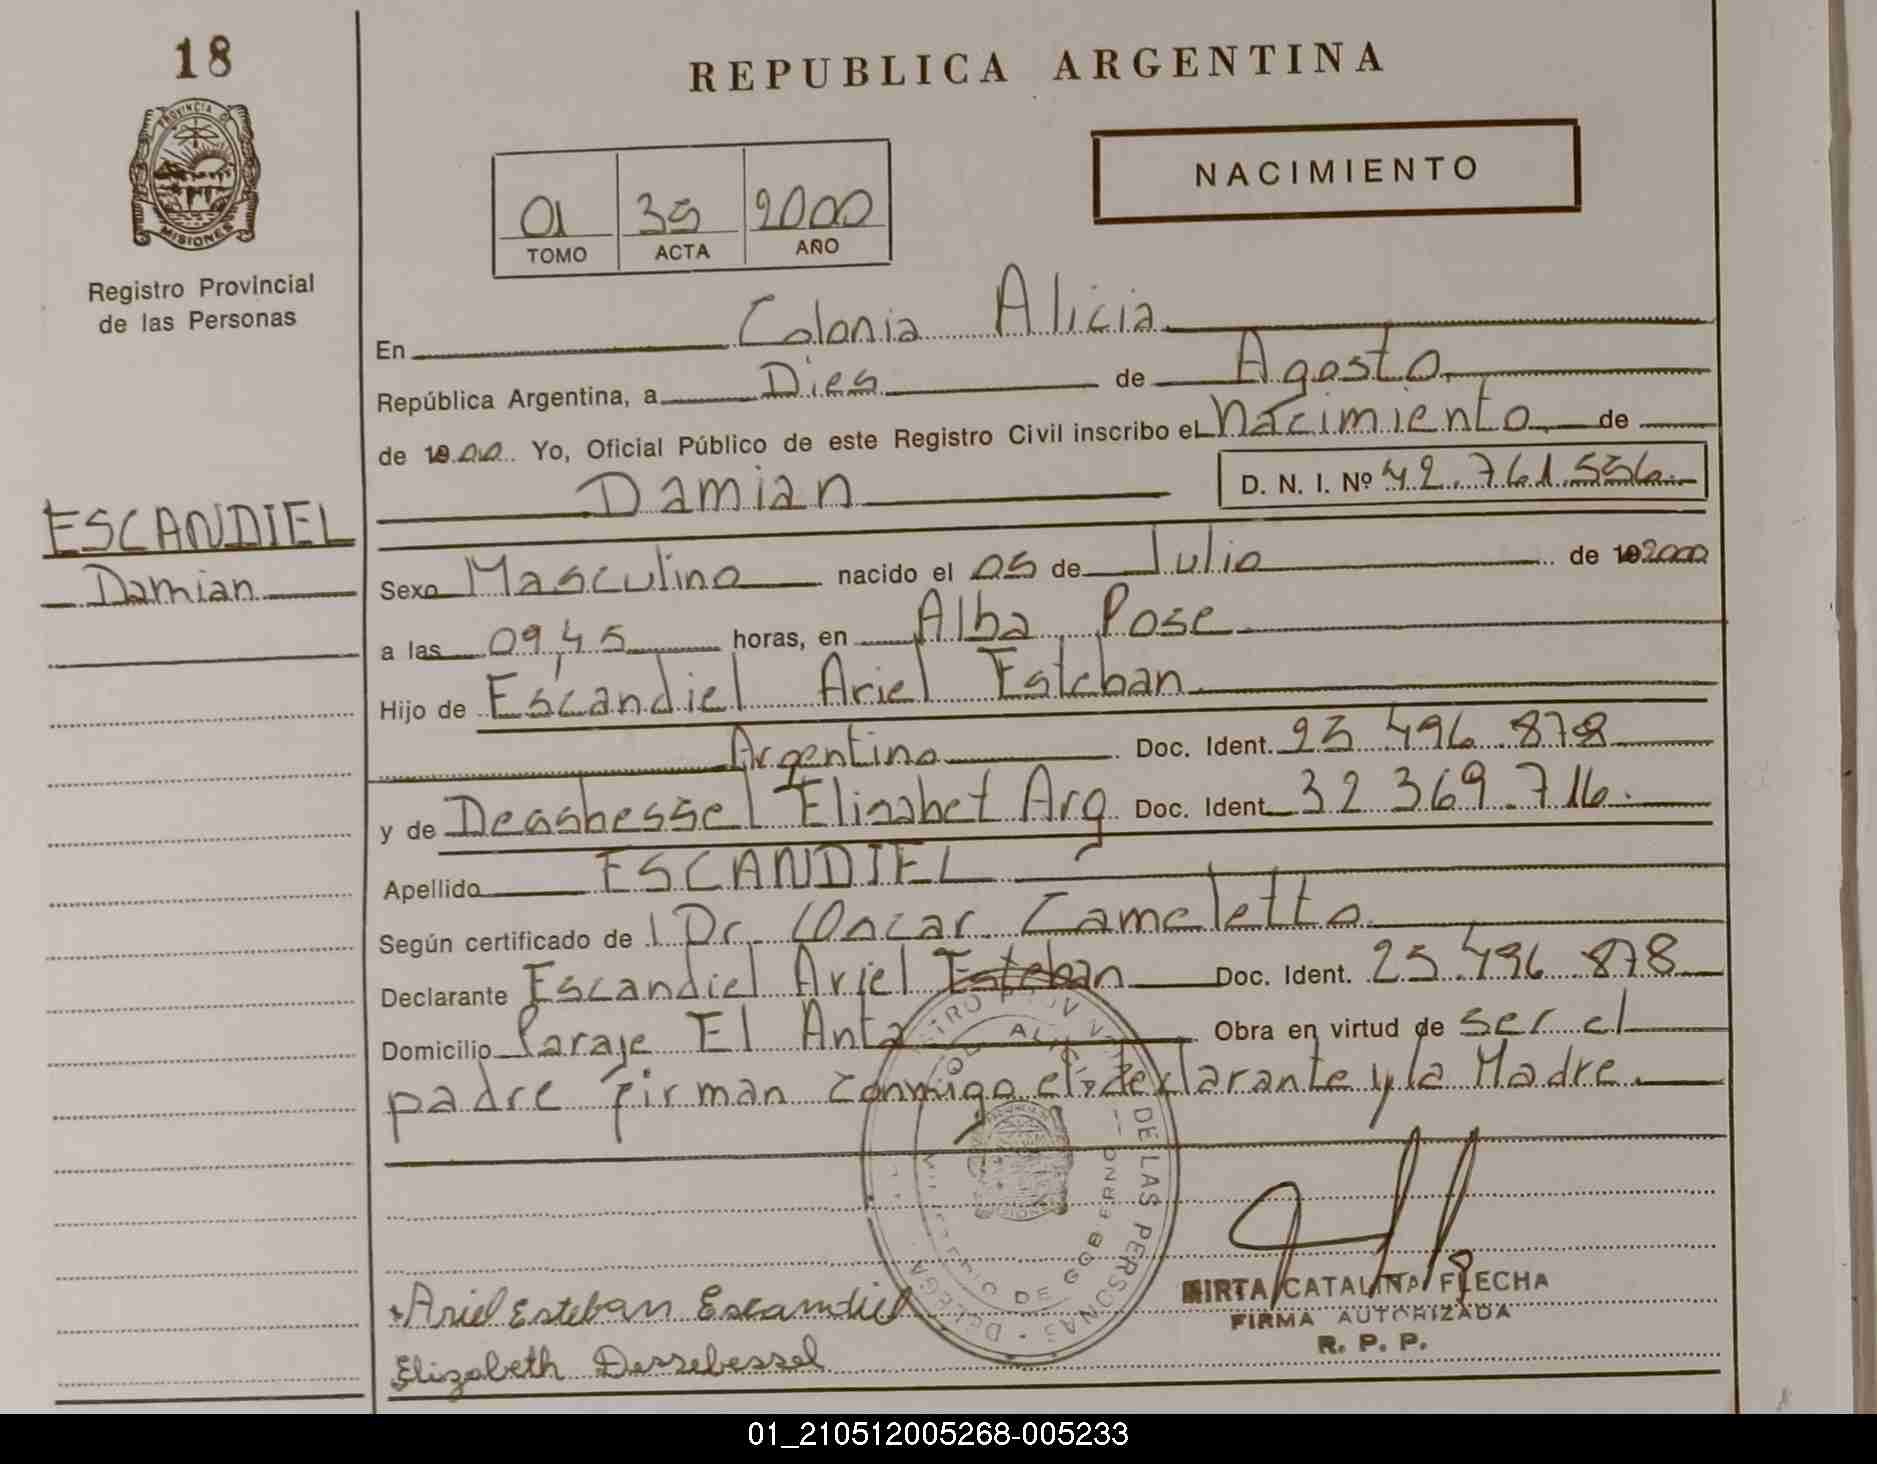 18
PROVINCIA DE
MISIONES
Registro Provincial
de las Personas
ESCANDIEL
Damian
REPUBLICA ARGENTINA
NACIMIENTO
01 35 2000
TOMO ACTA AÑO
En Colonia Alicia
República Argentina, a Dies de Agosto
de 1900 Yo, Oficial Público de este Registro Civil inscribo el Nacimiento de
Damian D. N. I. Nº 42.761.556
Sexo Masculino nacido el 05 de Julio de 192000
a las 09,45 horas, en Alba Pose
Hijo de Escandiel Ariel Esteban
Argentino Doc. Ident. 25 496 878
y de Elisabet Arg Doc. Ident. 32 369 716.
Apellido ESCANDIEL
Según certificado de Dr. Oscar Cameletto
Declarante Escandiel Ariel Esteban Doc. Ident. 25 496 878
Domicilio Paraje El Anta Obra en virtud de ser el
padre firman conmigo el declarante y la Madre.
DE LAS PERSONAS
DE GOBIERNO
Ariel Esteban Escandiel
Elizabeth Dessebessel
MIRTA CATALINA FLECHA
FIRMA AUTORIZADA
R. P. P.
01_210512005268-005233